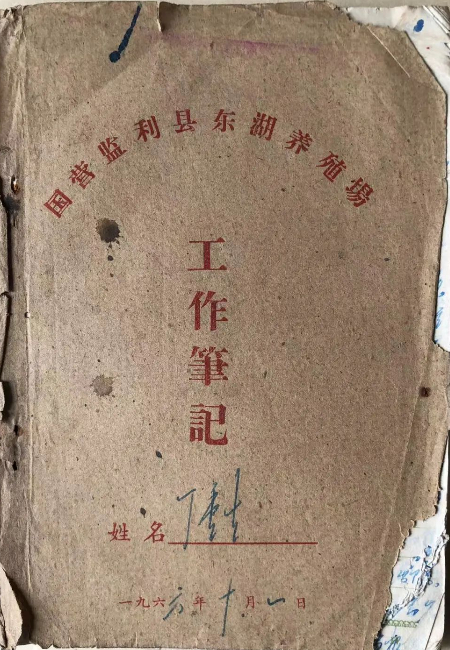 国营监利县东湖养殖場
工作筆記
姓名
一九六六年十月一日